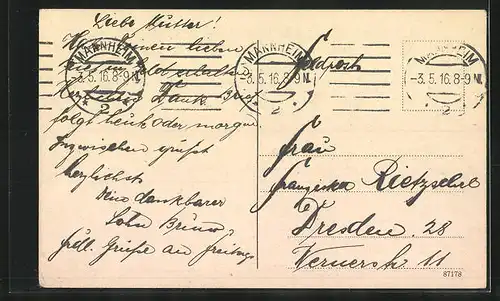 Liebe Mutter!
lieben
erhalten
Herzl. Dank. Brief
folgt heute oder morgen.
Inzwischen grüßt
herzlichst
Dein dankbarer
Sohn Bruno
frdl. Grüße an Freitags
MANNHEIM
-3.5.16.8-9 N.
* 2 *
MANNHEIM
-3.5.16.8-9 N.
2
MANNHEIM
-3.5.16.8-9 N.
2
Feldpost
Frau
Franziska Rietzschel
Dresden 28
Wernerstr. 11
87178